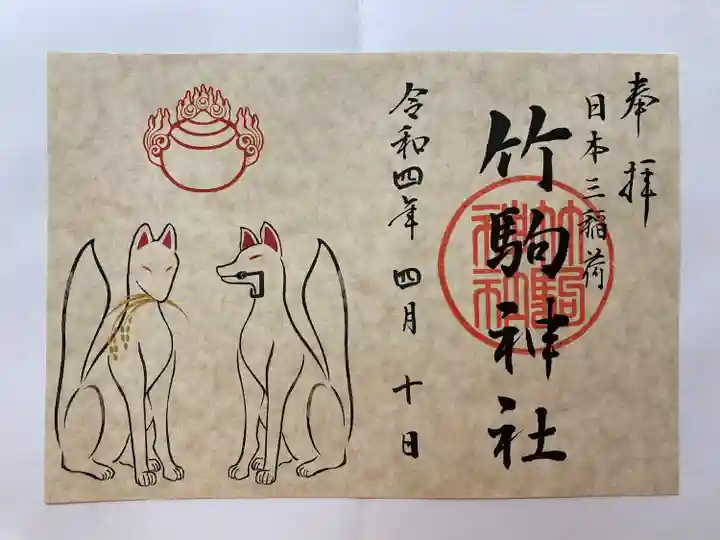 奉拝
日本三稲荷
竹駒神社
竹駒神社
令和四年 四月 十日